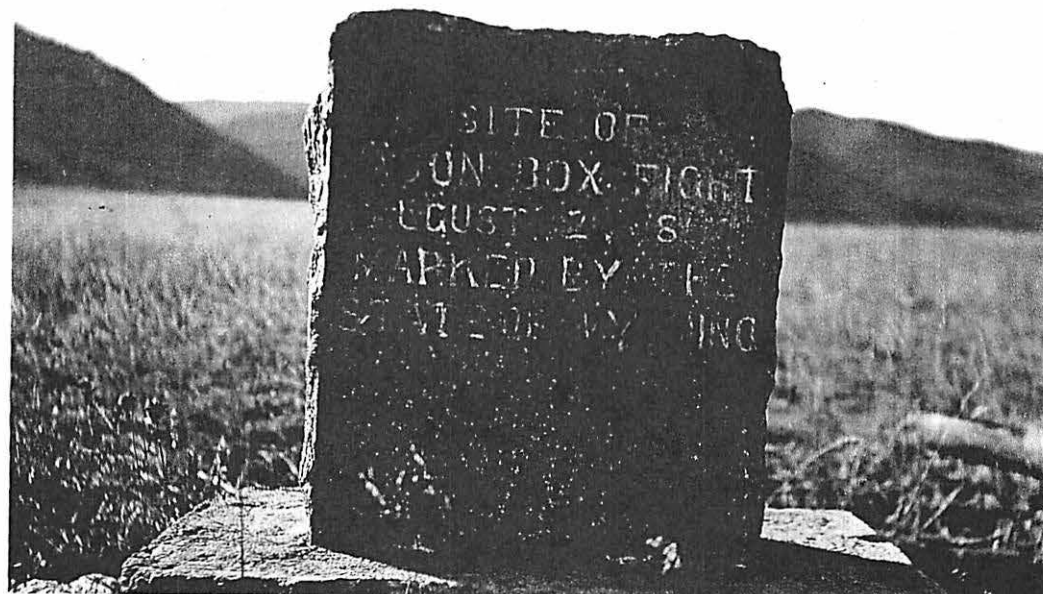 SITE OF
WAGON BOX FIGHT
AUGUST 2,
MARKED BY THE
STATE OF WYOMING